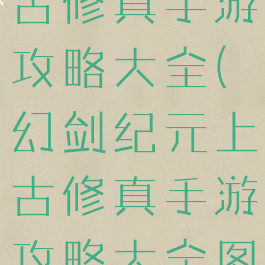 古修真手游
攻略大全(
幻剑纪元上
古修真手游
攻略大全图